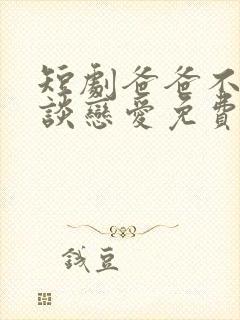 短劇爸爸不
談戀愛免費
錢豆